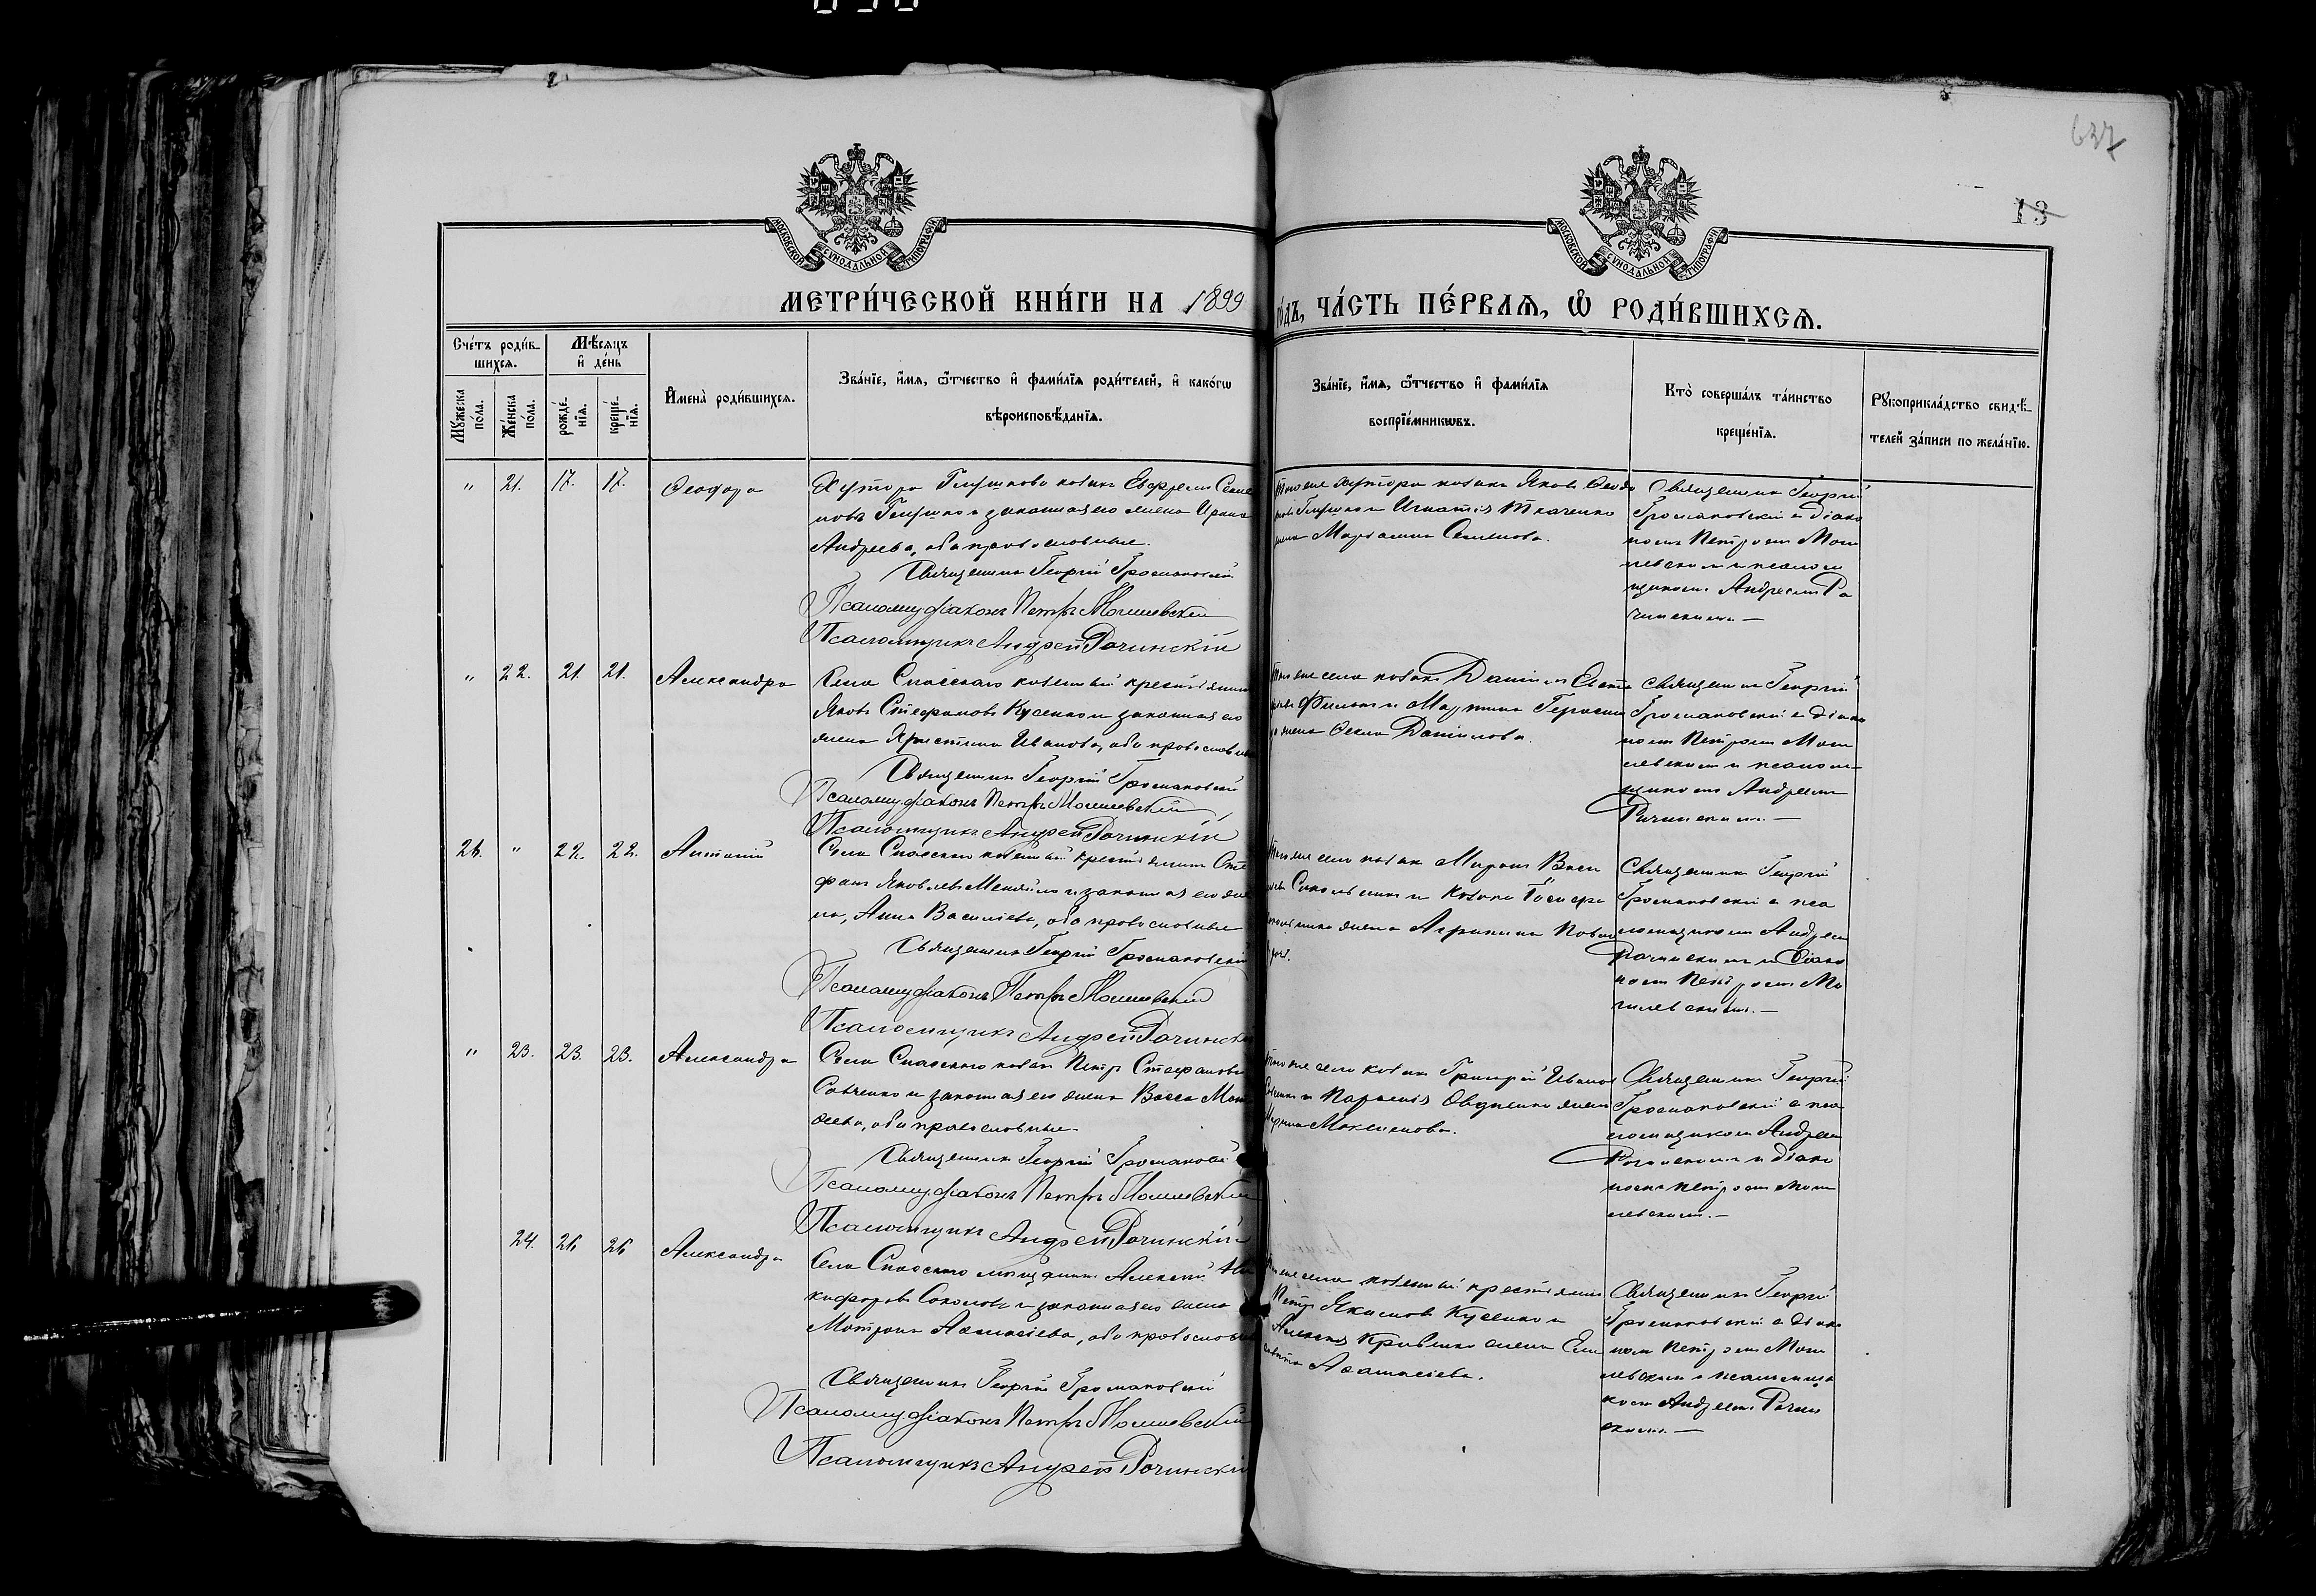 637
13
МОСКОВСКОЙ СѴНОДАЛЬНОЙ ТИПОГРАФІИ
МОСКОВСКОЙ СѴНОДАЛЬНОЙ ТИПОГРАФІИ
МЕТРИ́ЧЕСКОЙ КНИ́ГИ НА 1899
го́дъ, ЧА́СТЬ ПЕ́РВАѦ, Ѡ҆ РОДИ́ВШИХСѦ.
Сче́тъ роди́в-
шихсѧ.
Мѣ́сѧцъ
и҆ де́нь
Мꙋ́жеска по́ла.
Же́нска по́ла.
рожде́-
нїѧ.
креще́-
нїѧ.
И҆мена̀ роди́вшихсѧ.
Зва́нїе, и҆́мѧ, ѻ҆́тчество и҆ фами́лїѧ роди́телей, и҆ како́гѡ
вѣроисповѣ́данїѧ.
Зва́нїе, и҆́мѧ, ѻ҆́тчество и҆ фами́лїѧ
воспрїе́мникѡвъ.
Кто̀ соверша́лъ та́инство
креще́нїѧ.
Рꙋкоприкла́дство свидѣ́-
телей за́писи по жела́нїю.
" 21. 17. 17. Ѳеодора
Хутора Глушкова козакъ Ефремъ Семе
новъ Глушко и законная его жена Ирина
Андреева, оба православные.
Священникъ Георгій Громаковскій
Псаломщ. діаконъ Петръ Могилевскій
Псаломщикъ Андрей Рачинскій
Глушко и Игнатія Ткаченко
жена Марѳа Семенова.
Священникъ Георгій
Громаковскій с діако
номъ Петромъ Моги
левскимъ и псалом
щикомъ Андреемъ Ра
чинскимъ.—
" 22. 21. 21. Александра
Села Спасскаго казенный крестьянинъ
Яковъ Стефановъ Кусенко и законная его
жена Христина Иванова, оба православные
Священникъ Георгій Громаковскій
Псаломщ. діаконъ Петръ Могилевскій
Псаломщикъ Андрей Рачинскій
жена Ѳекла Данилова.
Священникъ Георгій
Громаковскій с діако
номъ Петромъ Моги
левскимъ и псалом-
щикомъ Андреемъ
Рачинскимъ.—
26. " 22. 22. Антоній
Села Спасскаго казенный крестьянинъ Сте
фанъ Яковлевъ и законная его же
на, Анна Василіева, оба православные
Священникъ Георгій Громаковскій
Псаломщ. діаконъ Петръ Могилевскій
Псаломщикъ Андрей Рачинскій
Того же села козакъ Миронъ Васи
и козака Іосифа
жена Агрипина
Священникъ Георгій
Громаковскій с пса
ломщикомъ Андреемъ
Рачинскимъ и діако
номъ Петромъ Мо
гилевскимъ.—
" 23. 23. 23. Александра
Села Спасскаго козакъ Петръ Стефановъ
Савченко и законная его жена Васса Мат
ѳеева, оба православные.
Священникъ Георгій Громаковскій
Псаломщ. діаконъ Петръ Могилевскій
Псаломщикъ Андрей Рачинскій
Того же села козакъ Григорій Иванов
и Параскевія жена
Марина Максимова.
Священникъ Георгій
Громаковскій с пса
ломщикомъ Андреемъ
Рачинскимъ и діако
номъ Петромъ Моги
левскимъ.—
24. 26 26 Александра
Села Спасскаго мѣщанинъ Алексій Ни
кифоровъ Соколовъ и законная его жена
Матрона Аѳанасіева, оба православные
Священникъ Георгій Громаковскій
Псаломщ. діаконъ Петръ Могилевскій
Псаломщикъ Андрей Рачинскій
Того же села казенный крестьянинъ
Петръ Якимовъ Кусенко и
Алексія жена Ели
савета Аѳанасіева.
Священникъ Георгій
Громаковскій с діако
номъ Петромъ Моги
левскимъ и псаломщи
комъ Андреемъ Рачин
скимъ.—